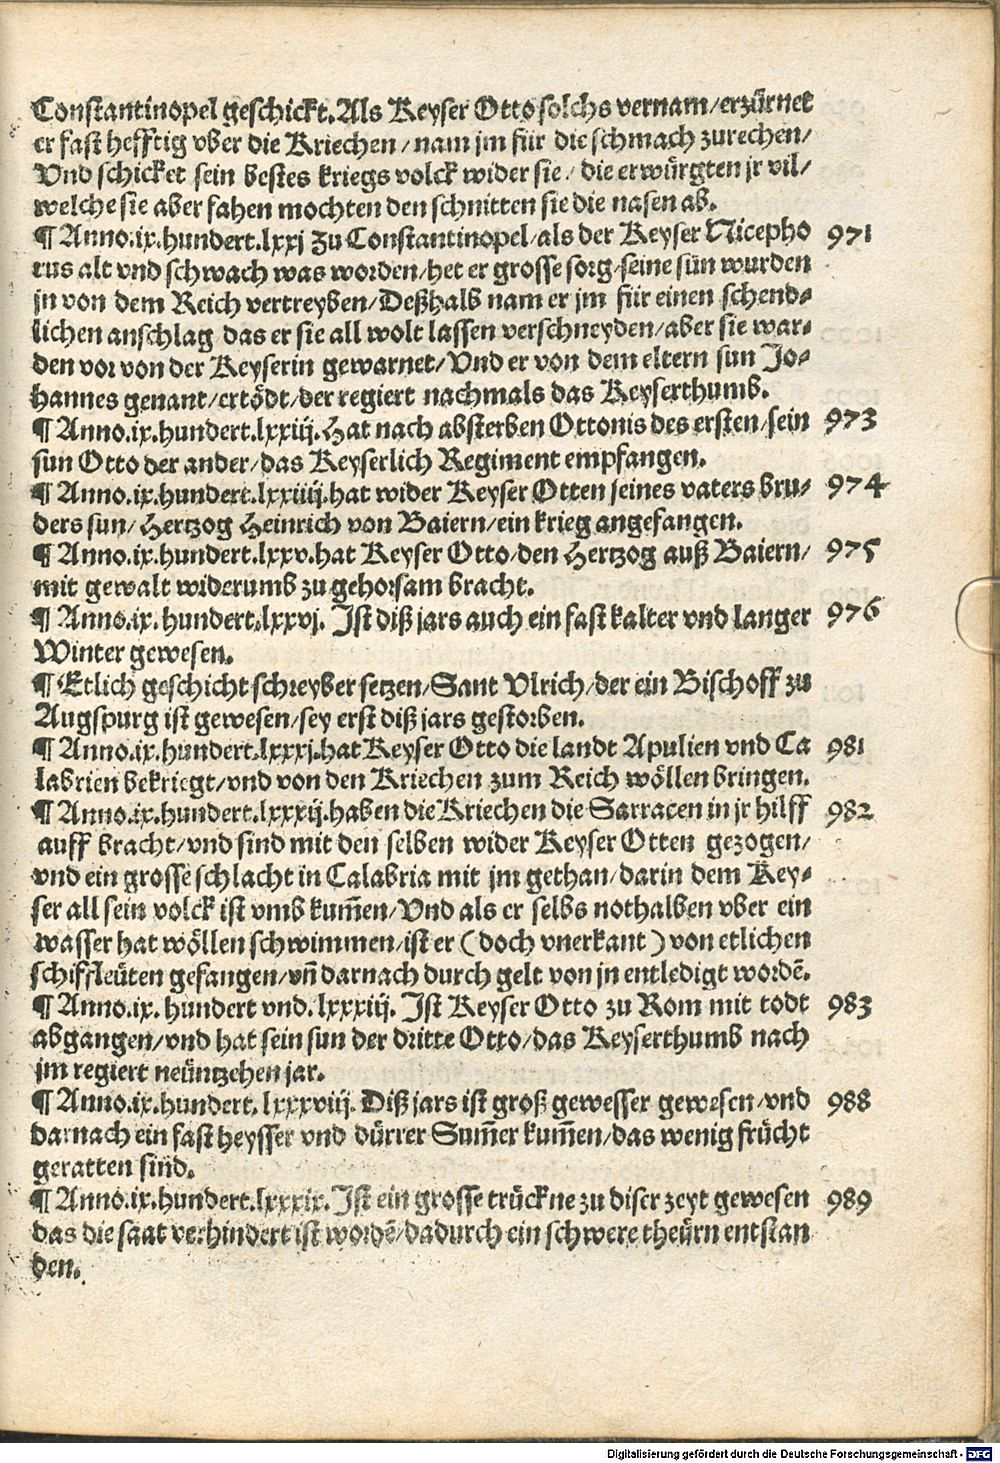 Constantinopel geschickt. Als Keyser Otto solchs vernam/erzürnet
er fast hefftig vber die Kriechen/nam jm für die schmach zurechen/
Vnd schicket sein bestes kriegs volck wider sie/die erwürgten jr vil/
welche sie aber fahen mochten den schnitten sie die nasen ab.
¶ Anno.ix.hundert.lxxj Zu Constantinopel/als der Keyser Nicepho 971
rus alt vnd schwach was worden/het er grosse sorg/seine sün wurden
jn von dem Reich vertreyben/Deßhalb nam er jm für einen schend⸗
lichen anschlag das er sie all wolt lassen verschneyden/aber sie war⸗
den vor von der Keyserin gewarnet/Vnd er von dem eltern sun Jo⸗
hannes genant/ertödt/der regiert nachmals das Keyserthumb.
¶ Anno.ix.hundert.lxxiij.Hat nach absterben Ottonis des ersten/sein 973
sun Otto der ander/das Keyserlich Regiment empfangen.
¶ Anno.ix.hundert.lxxiiij.hat wider Keyser Otten seines vaters bru⸗ 974
ders sun/Hertzog Heinrich von Baiern/ein krieg angefangen.
¶ Anno.ix.hundert.lxxv.hat Keyser Otto/den Hertzog auß Baiern/ 975
mit gewalt widerumb zu gehorsam bracht.
¶ Anno.ix.hundert.lxxvj. Ist diß jars auch ein fast kalter vnd langer 976
Winter gewesen.
¶ Etlich geschicht schreyber setzen/Sant Vlrich/der ein Bischoff zu
Augspurg ist gewesen/sey erst diß jars gestorben.
¶ Anno.ix.hundert.lxxxj.hat Keyser Otto die landt Apulien vnd Ca 981
labrien bekriegt/vnd von den Kriechen zum Reich wöllen bringen.
¶ Anno.ix.hundert.lxxxij.haben die Kriechen die Sarracen in jr hilff 982
auff bracht/vnd sind mit den selben wider Keyser Otten gezogen/
vnd ein grosse schlacht in Calabria mit jm gethan/darin dem Key⸗
ser all sein volck ist vmb kum̄en/Vnd als er selbs nothalben vber ein
wasser hat wöllen schwimmen/ist er (doch vnerkant) von etlichen
schiffleüten gefangen/vn̄ darnach durch gelt von jn entledigt wordē.
¶ Anno.ix. hundert vnd. lxxxiij. Ist Keyser Otto zu Rom mit todt 983
abgangen/vnd hat sein sun der dritte Otto/das Keyserthumb nach
jm regiert neüntzehen jar.
¶ Anno.ix.hundert. lxxxviij. Diß jars ist groß gewesser gewesen/vnd 988
darnach ein fast heysser vnd dürrer Sum̄er kum̄en/das wenig frücht
geratten sind.
¶ Anno.ix.hundert.lxxxix. Ist ein grosse trückne zu diser zeyt gewesen 989
das die saat verhindert ist wordē/dadurch ein schwere theürn entstan
den.
Digitalisierung gefördert durch die Deutsche Forschungsgemeinschaft - DFG